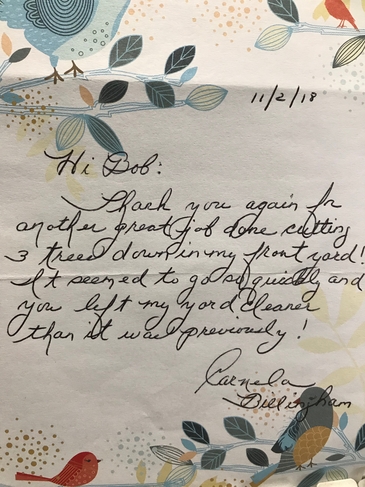 11/2/18
Hi Bob:
Thank you again for
another great job done cutting
3 trees down in my front yard!
It seemed to go so quickly and
you left my yard cleaner
than it was previously!
Carmela
Billingham